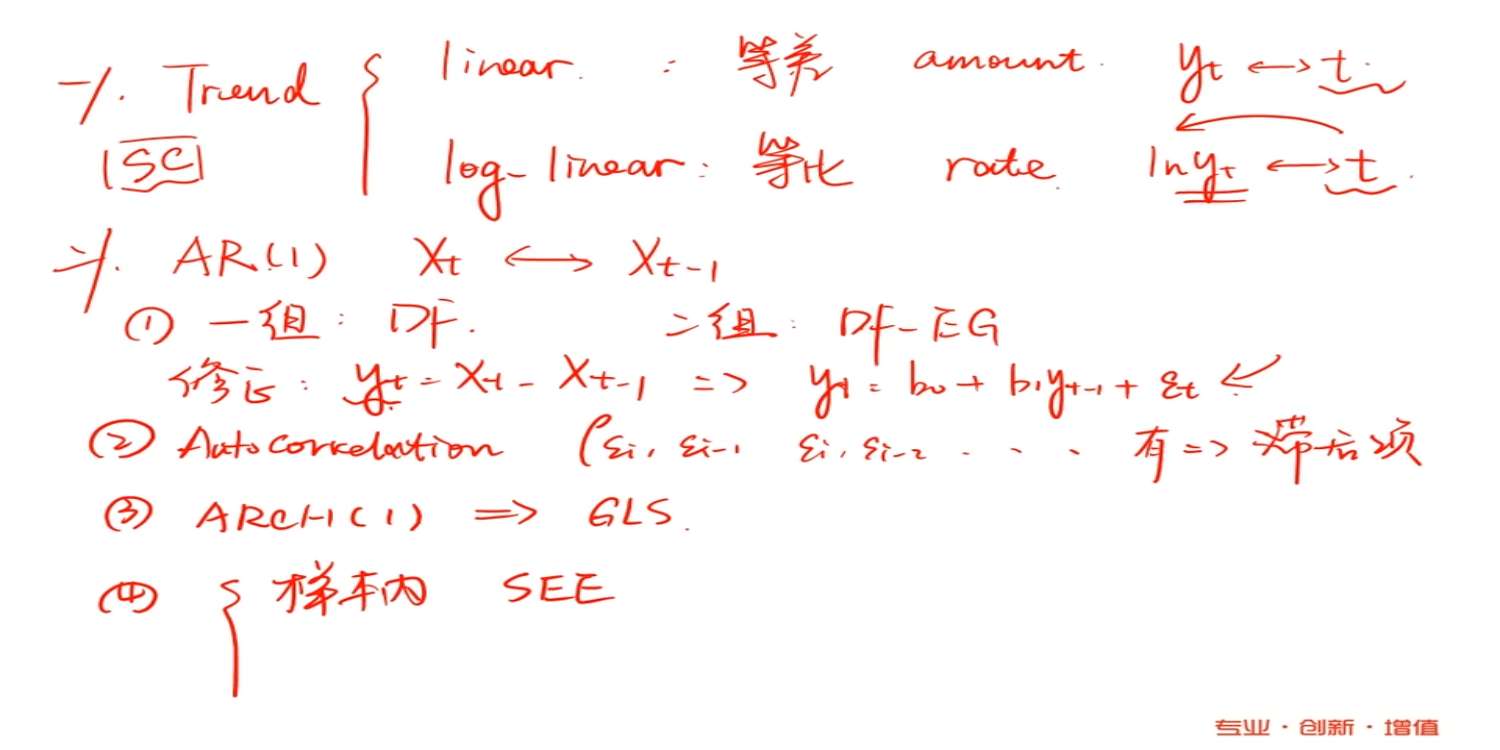 一、Trend { linear : 等差 amount. yt ↔ t.
[SC] log-linear : 等比 rate. ln yt ↔ t.
二、AR(1) Xt ↔ Xt-1
① 一组: DF. 二组: DF-EG
修正: yt = Xt - Xt-1 => yt = b0 + b1yt-1 + εt ↙
② Autocorrelation ρεi, εi-1 εi, εi-2 . . . 有 => 滞后项
③ ARCH(1) => GLS.
④ { 样本内 SEE
专业·创新·增值